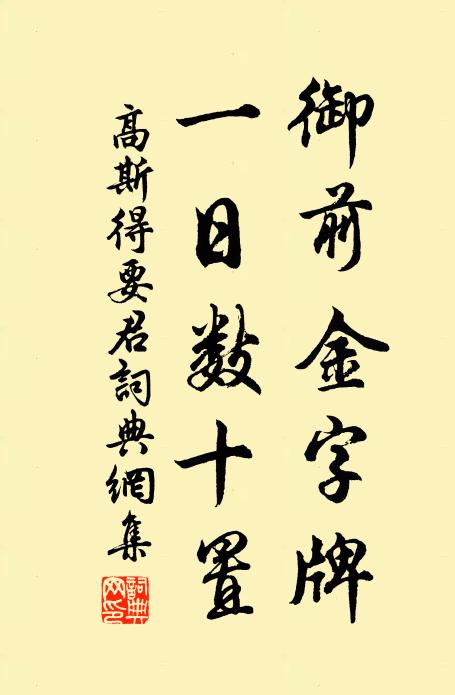 御前金字牌
一日数十置
高斯得要君詞典網集
詞典網印